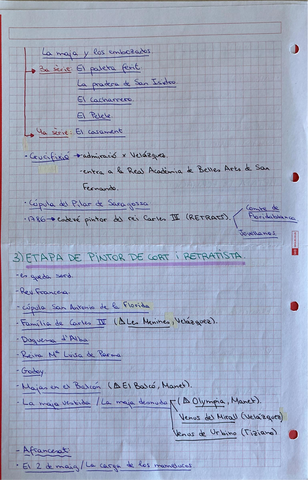 La maja y los embozados
→ 3a sèrie: El paleta ferit
La pradera de San Isidro
El cacharrero
El Pelele
→ 4a sèrie: El casament
- Crucifixió → admiració x Velázquez.
- entra a la Real Acadèmia de Belles Arts de San
Fernando.
- Cúpula del Pilar de Saragossa
- 1786 → esdevé pintor del rei Carles IV (RETRATS).
Comte de Floridablanca
Jovellanos
3) ETAPA DE PINTOR DE CORT i RETRATISTA.
- es queda sord.
- Rev Francesa.
- Cúpula San Antonio de la Florida
- Família de Carles IV (Δ Les Menines, Velázquez).
- Duquessa d'Alba
- Reina Mª Luisa de Parma
- Godoy
- Majas en el Balcón (Δ El Balcó, Manet).
- La maja vestida / La maja desnuda
Δ Olympia, Manet.
Venus del Mirall (Velázquez)
Venus de Urbino (Tiziano).
- Afrancesat
- El 2 de maig / La carga de los mamelucos